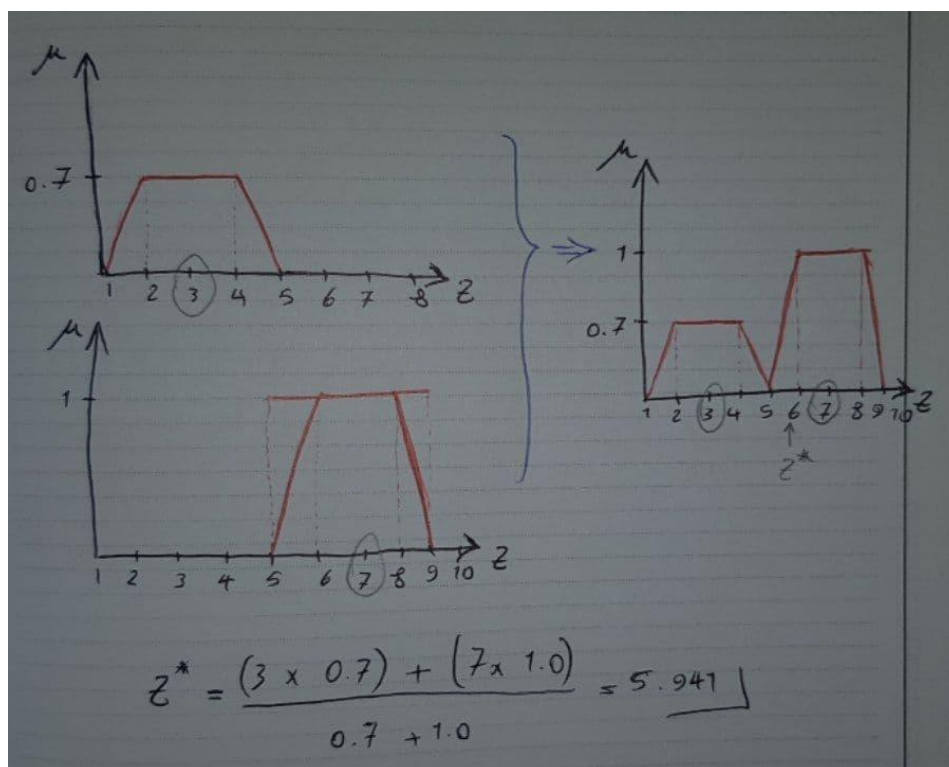 μ
0.7
1 2 3 4 5 6 7 8 Z
μ
1
1 2 3 4 5 6 7 8 9 10 Z
⇒
μ
1
0.7
1 2 3 4 5 6 7 8 9 10 Z
↑
Z*
Z* = (3 x 0.7) + (7x 1.0) / 0.7 + 1.0 = 5.941